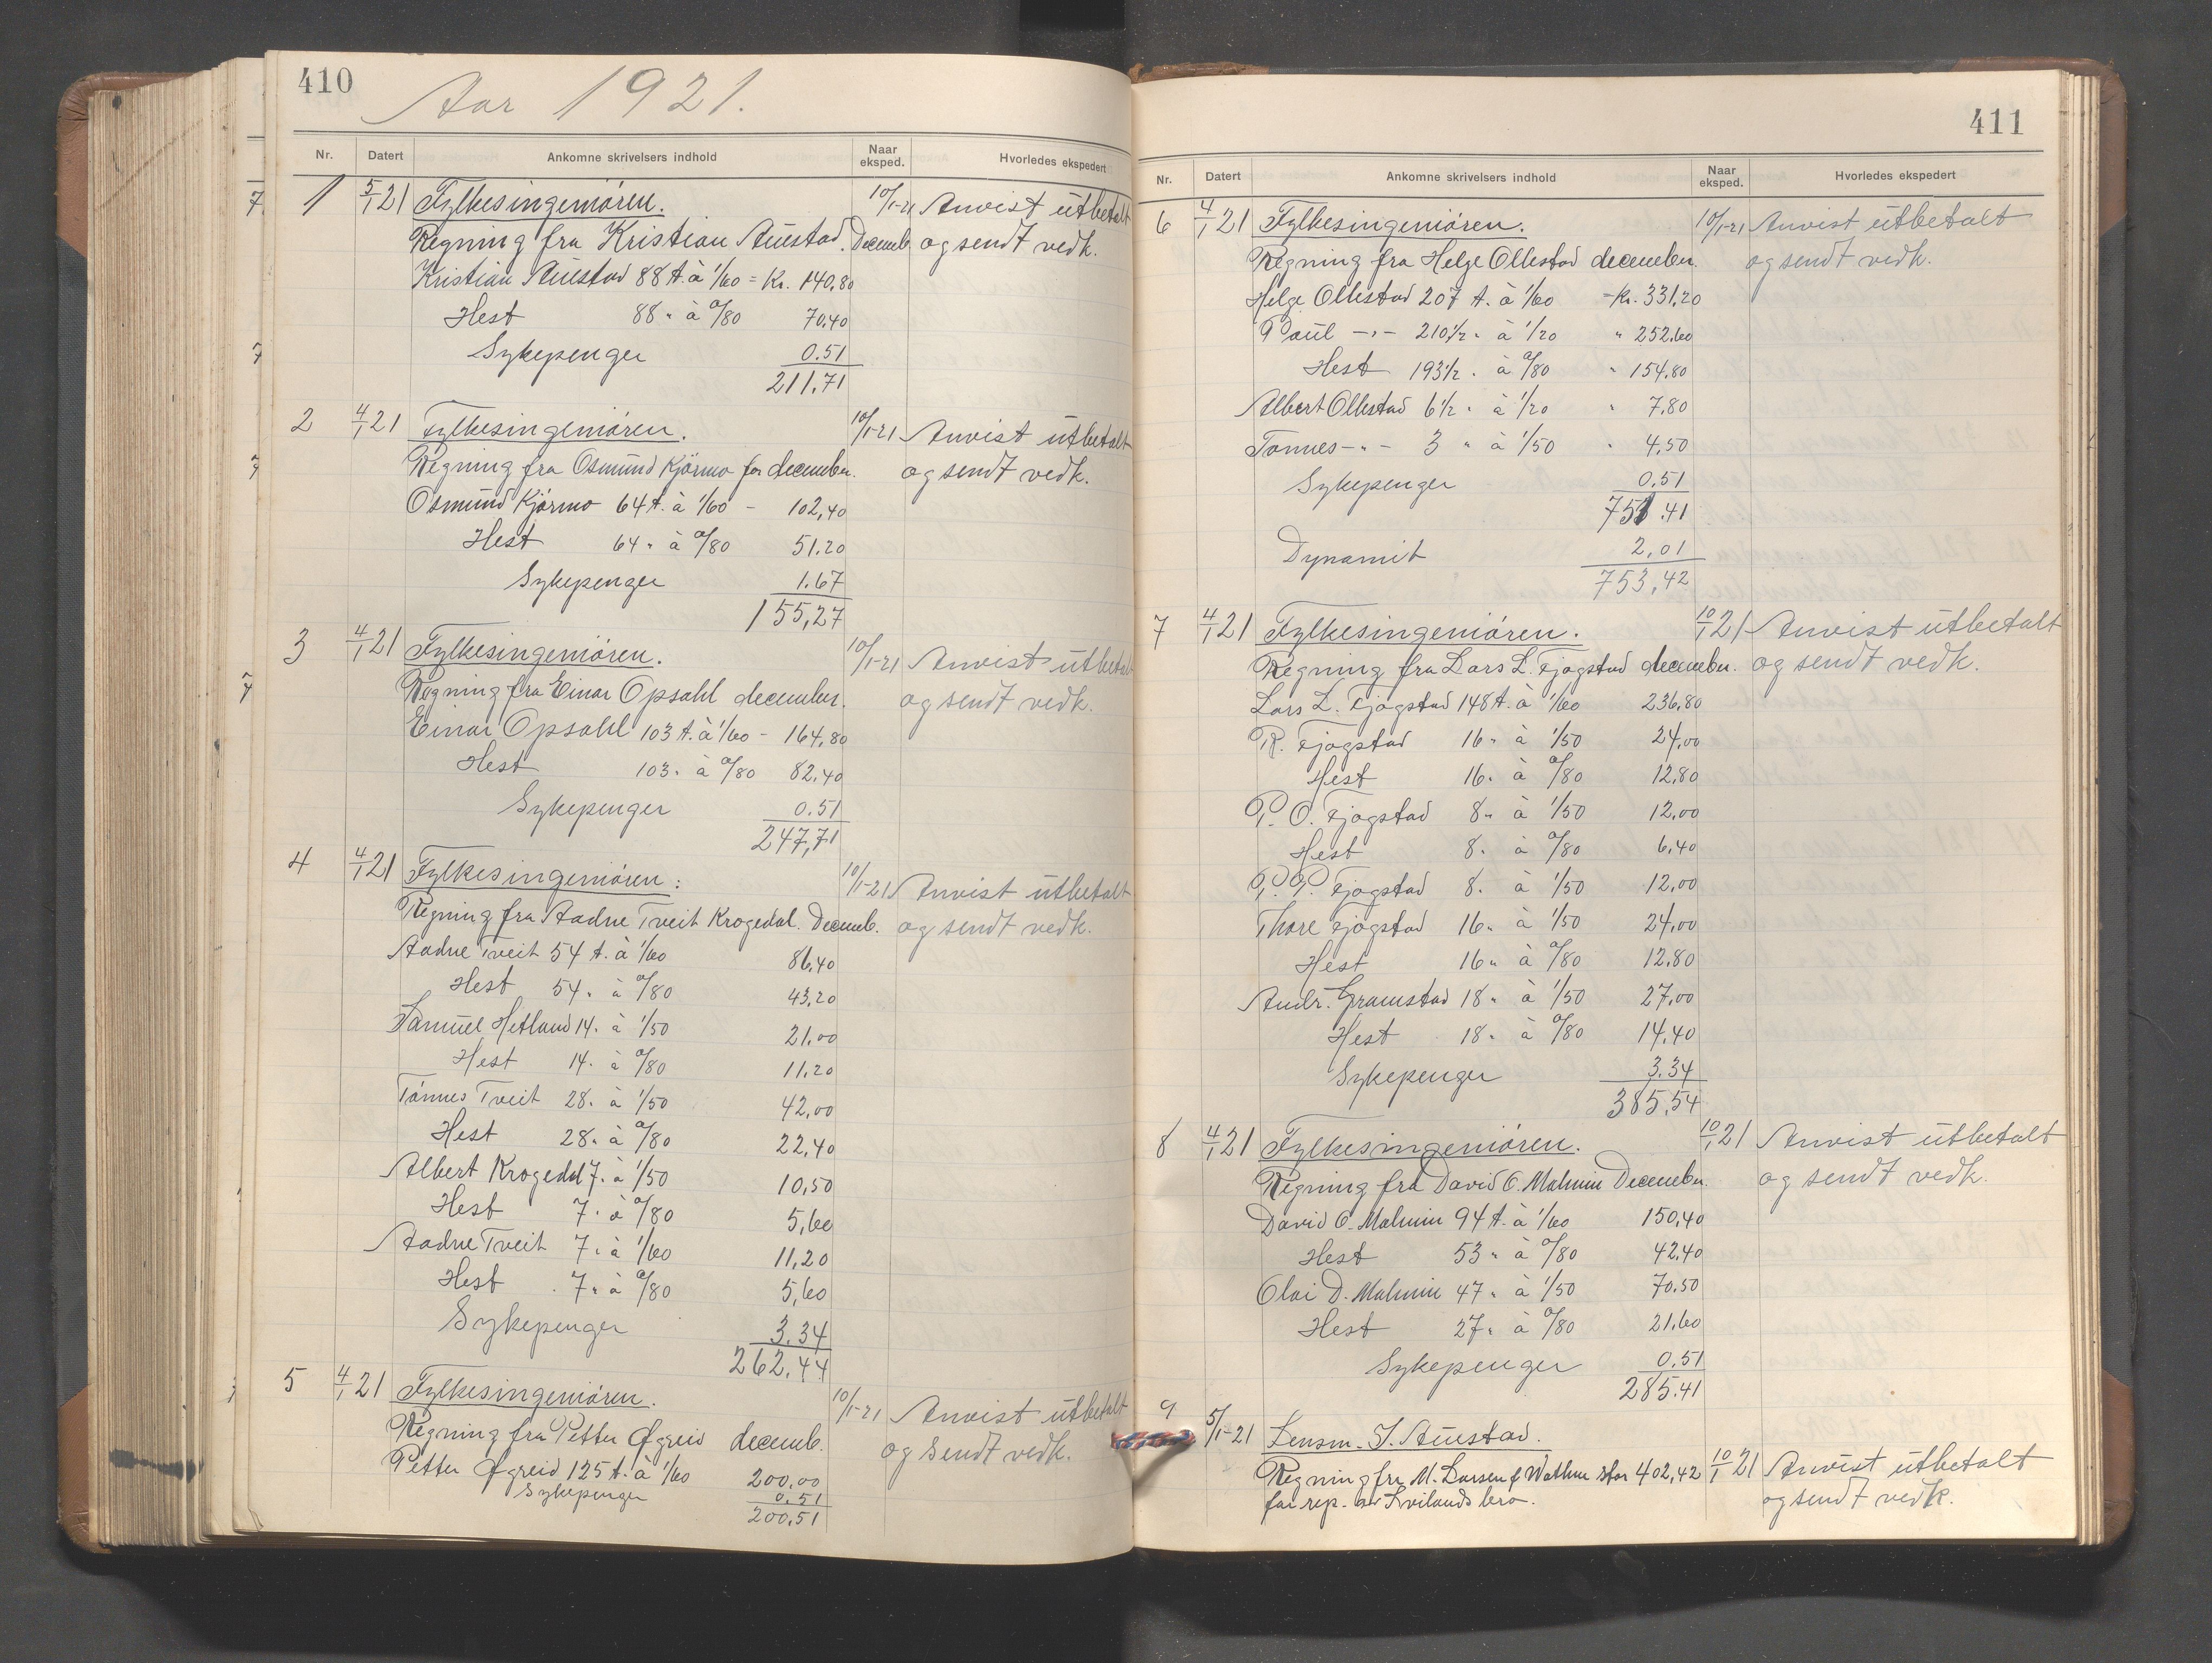 410
Aar 1921.
Nr. Datert Ankomne skrivelsers indhold Naar eksped. Hvorledes ekspedert
1 5/1 21 Fylkesingeniören. 10/1-21 Anvist utbetalt
Regning fra Kristian Auestad. Decemb. og sendt vedk.
Kristian Auestad 88 t. à 1/60 = Kr. 140,80
Hest 88 " à 0/80 70,40
Sykepenger 0.51
211,71
2 4/1 21 Fylkesingeniören. 10/1-21 Anvist utbetalt
Regning fra Osmund Kjörmo for december. og sendt vedk.
Osmund Kjörmo 64 t. à 1/60 - 102,40
Hest 64 " à 0/80 51.20
Sykepenger 1.67
155,27
3 4/1 21 Fylkesingeniören. 10/1-21 Anvist utbetalt
Regning fra Einar Opsahl december. og sendt vedk.
Einar Opsahl 103 t. à 1/60 - 164,80
Hest 103 " à 0/80 82,40
Sykepenger 0.51
247,71
4 4/1 21 Fylkesingeniören: 10/1-21 Anvist utbetalt
Regning fra Aadne Tveit Krogedal. Decemb. og sendt vedk.
Aadne Tveit 54 t. à 1/60 86,40
Hest 54 " à 0/80 43,20
Samuel Hetland 14 " à 1/50 21,00
Hest 14 " à 0/80 11,20
Tönnes Tveit 28 " à 1/50 42,00
Hest 28 " à 0/80 22,40
Albert Krogedal 7 " à 1/50 10,50
Hest 7 " à 0/80 5,60
Aadne Tveit 7 " à 1/60 11,20
Hest 7 " à 0/80 5,60
Sykepenger 3.34
262,44
5 4/1 21 Fylkesingeniören. 10/1-21 Anvist utbetalt
Regning fra Petter Øgreid decemb. og sendt vedk.
Petter Øgreid 125 t. à 1/60 200,00
Sykepenger 0.51
200,51
411
Nr. Datert Ankomne skrivelsers indhold Naar eksped. Hvorledes ekspedert
6 4/1 21 Fylkesingeniören. 10/1-21 Anvist utbetalt
Regning fra Helge Ollestad december. og sendt vedk.
Helge Ollestad 207 t. à 1/60 - Kr. 331,20
Paul -"- 210 1/2 " à 1/20 " 252.60
Hest 193 1/2 " à 0/80 " 154.80
Albert Ollestad 6 1/2 " à 1/20 " 7.80
Tönnes -"- 3 " à 1/50 " 4,50
Sykepenger 0,51
751.41
Dynamit 2,01
753,42
7 4/1 21 Fylkesingeniören. 10/1 21 Anvist utbetalt
Regning fra Lars L. Fjogstad december. og sendt vedk.
Lars L. Fjogstad 148 t. à 1/60 236,80
R. Fjogstad 16 " à 1/50 24,00
Hest 16 " à 0/80 12,80
P. O. Fjogstad 8 " à 1/50 12,00
Hest 8 " à 0/80 6,40
P. P. Fjogstad 8 " à 1/50 12,00
Thore Fjogstad 16 " à 1/50 24,00
Hest 16 " à 0/80 12.80
Andr. Gramstad 18 " à 1/50 27,00
Hest 18 " à 0/80 14,40
Sykepenger 3.34
385,54
8 4/1 21 Fylkesingeniören. 10/1 21 Anvist utbetalt
Regning fra David O. Malmin December. og sendt vedk.
David O. Malmin 94 t. à 1/60 150,40
Hest 53 " à 0/80 42,40
Olai D. Malmin 47 " à 1/50 70.50
Hest 27 " à 0/80 21.60
Sykepenger 0.51
285.41
9 5/1-21 Lensm. J. Auestad.
Regning fra M. Larsen & Wathne stor 402,42 10/1 21 Anvist utbetalt
for rep. av Svilands bro. og sendt vedk.